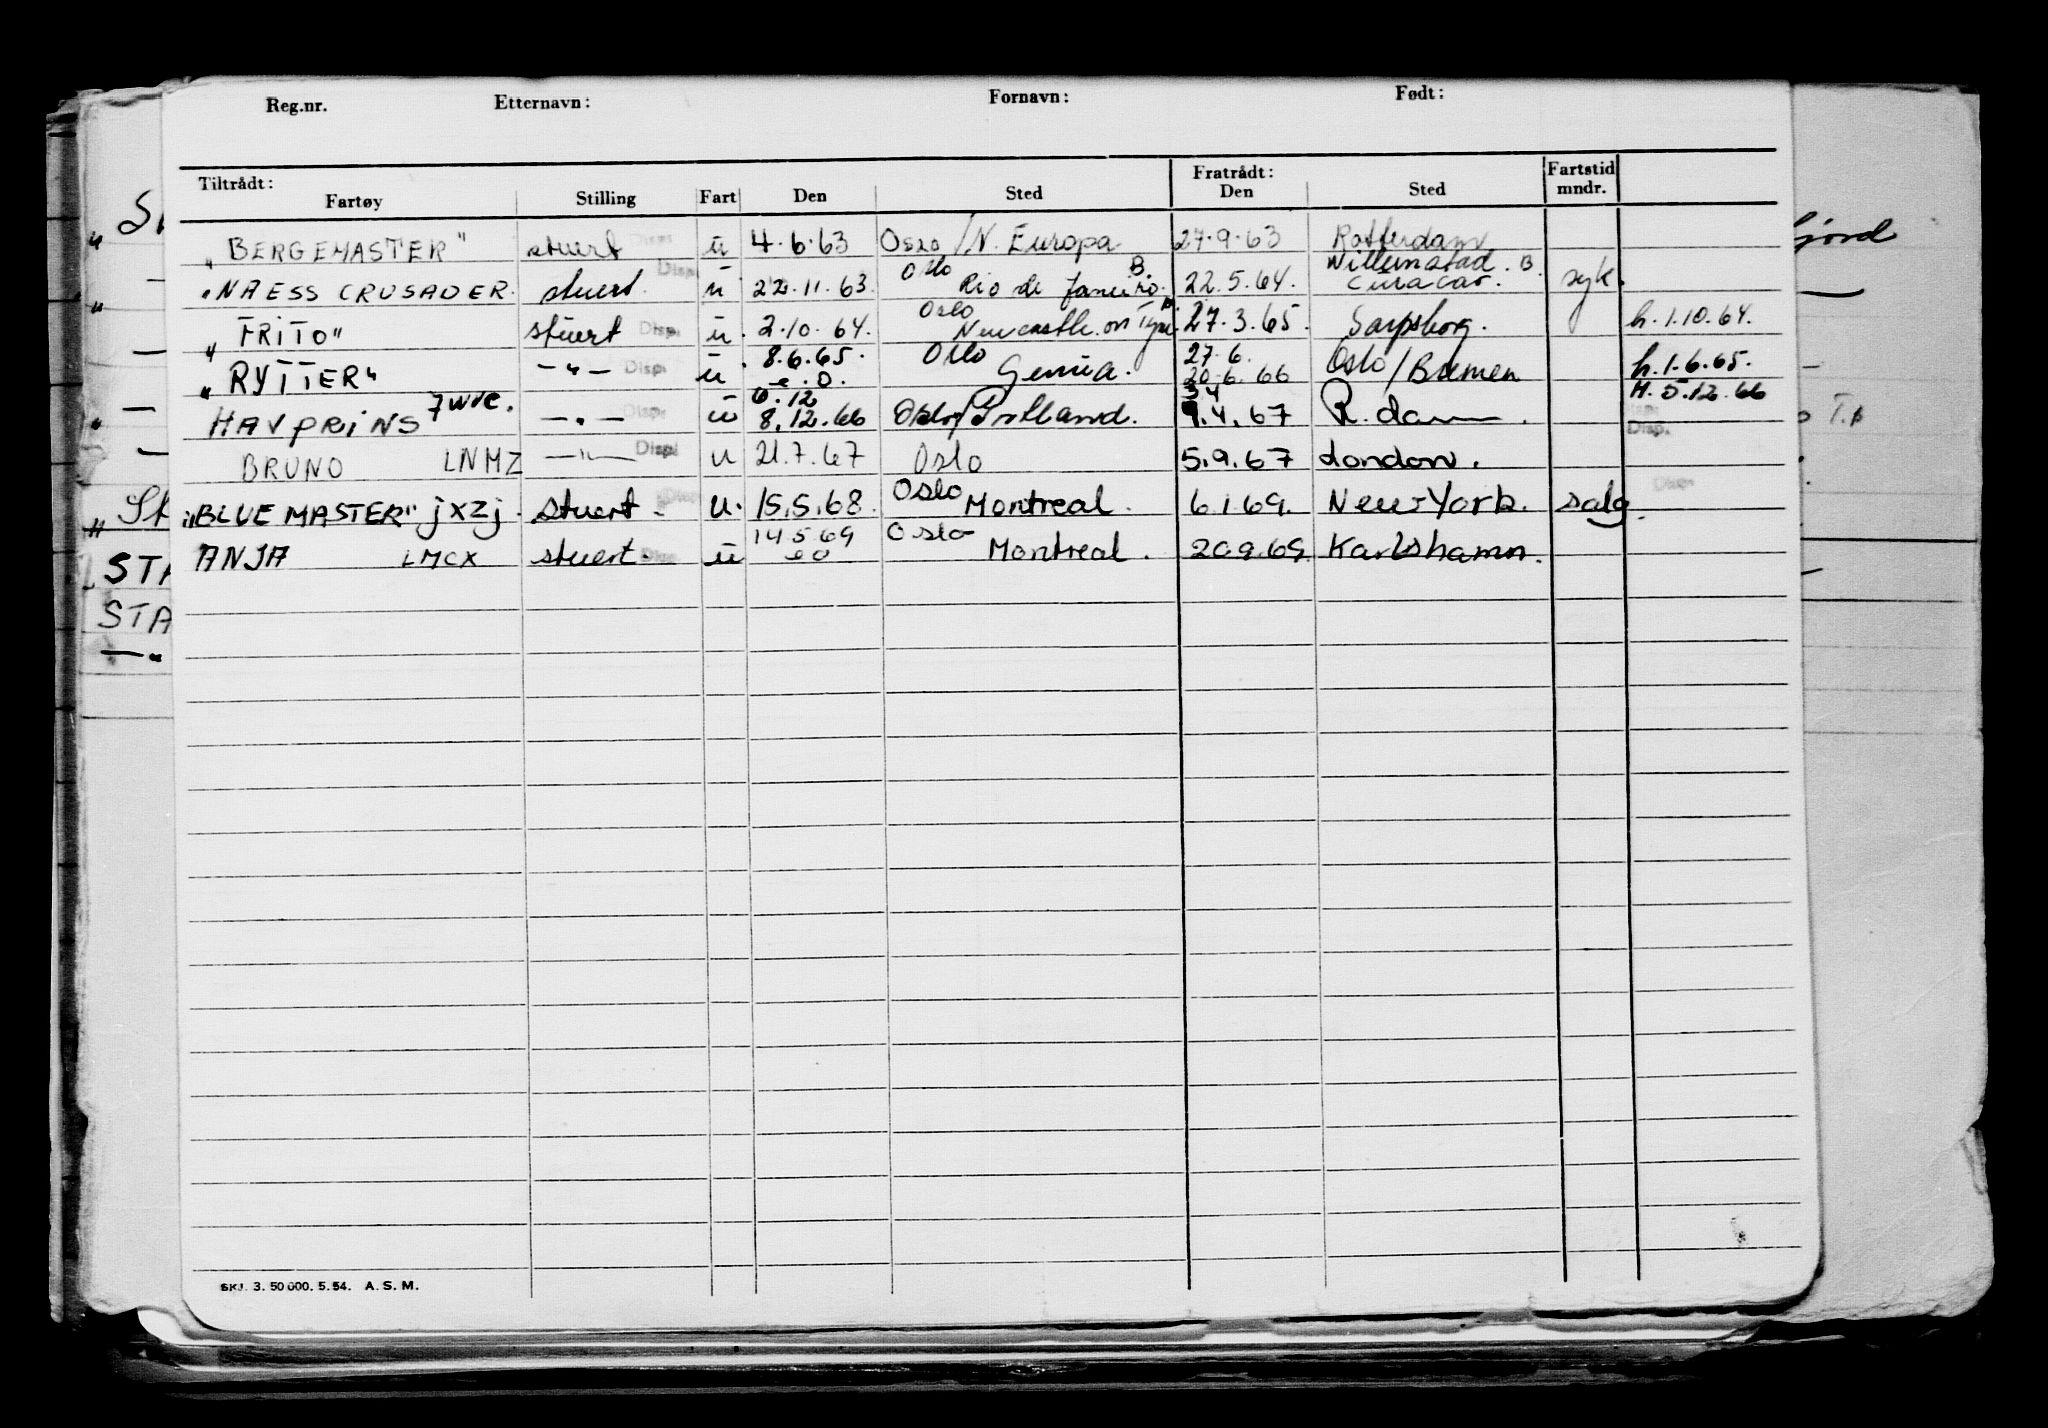 Reg.nr. Etternavn: Fornavn: Født:
Tiltrådt: Fratrådt: Fartstid
Fartøy Stilling Fart Den Sted Den Sted mndr.
"BERGEMASTER" stuert Disp. u 4.6.63 Oslo/N. Europa 27.9.63 Rotterdam
"NAESS CRUSADER. stuert. Disp. u 22.11.63. Oslo Rio de Janeiro. B. 22.5.64. Willemstad. B. Curacao. syk.
"FRITO" stuert Disp. u. 2.10.64. Oslo Newcastle on Tyne. B. 27.3.65. Sarpsborg. h.1.10.64.
"RYTTER" —"— Disp. u 8.6.65. Oslo Genua. 27.6. 20.6.66 Oslo/Bremen h.1.6.65.
HAVPRINS —"— Disp. u 6.12 8.12.66 Oslo/Portland. 3.4 9.4.67 R.dam. H.5.12.66
Disp.
BRUNO LNMZ —"— Disp. u 21.7.67 Oslo 5.9.67 London.
"BLUE MASTER" jxzj. stuert. Disp. u. 15.5.68. Oslo Montreal. 6.1.69. New York. salg. Disp.
ANJA LMCX stuert. Disp. u 14.5.69 Oslo Montreal. 20.9.69. Karlshamn.
SKJ. 3. 50 000. 5. 54. A. S. M.
STA
STA
—"
T.B